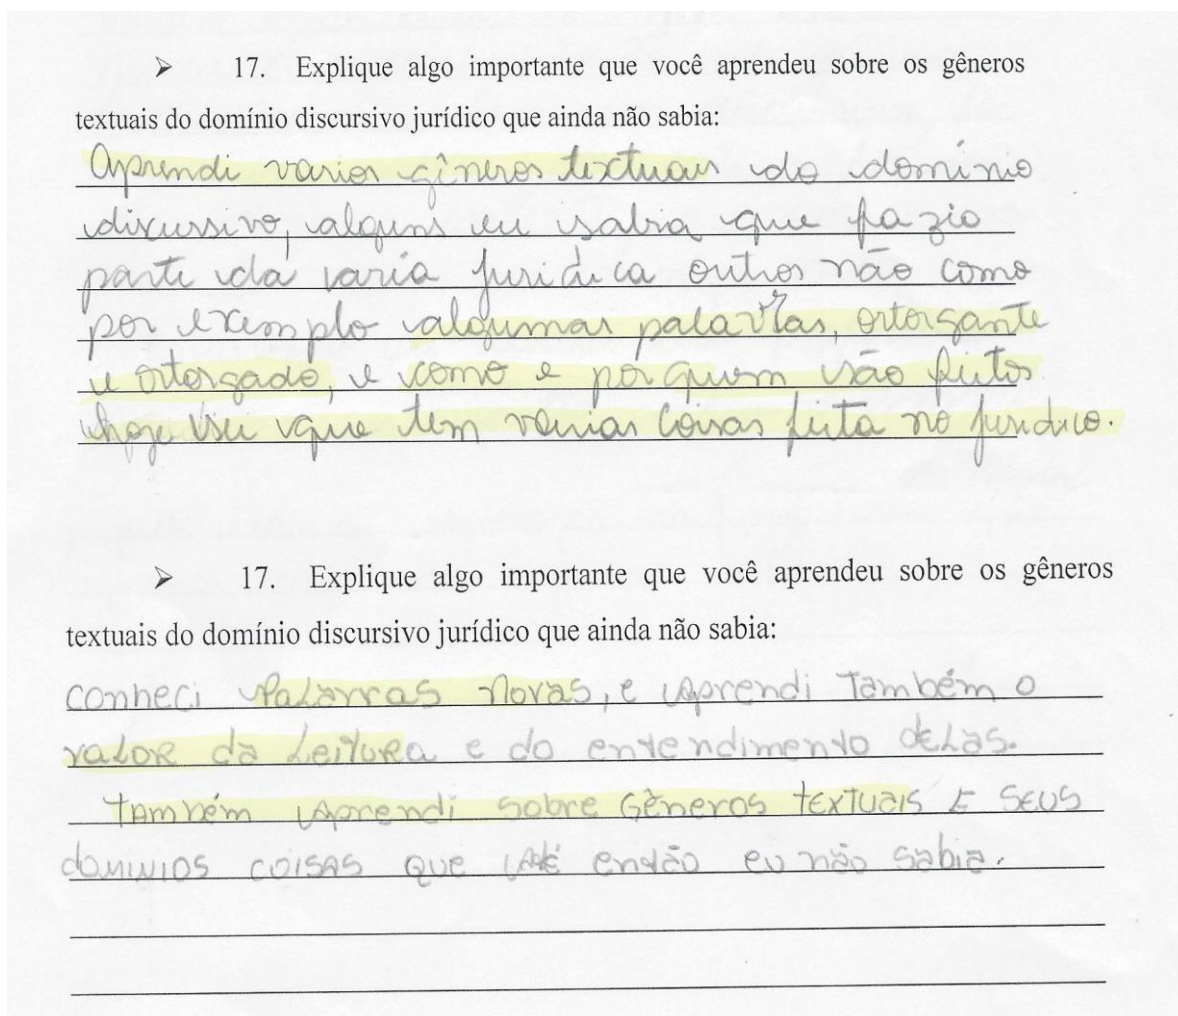 ➢ 17. Explique algo importante que você aprendeu sobre os gêneros
textuais do domínio discursivo jurídico que ainda não sabia:
Aprendi varios gêneros textuais do domínio
discussivo, alguns eu sabia que fazio
parte da varia juridica outros não como
por exemplo algumas palavras, ortorgante
e ortorgado, e como e por quem são feitos
hoje vseu que tem varias coisas feita no juridico.
➢ 17. Explique algo importante que você aprendeu sobre os gêneros
textuais do domínio discursivo jurídico que ainda não sabia:
conheci Palavras Novas, e Aprendi Também o
valor da Leitura e do entendimento delas.
Também Aprendi sobre Gêneros textuais E SEUS
domínios coisas que Até então eu não sabia.